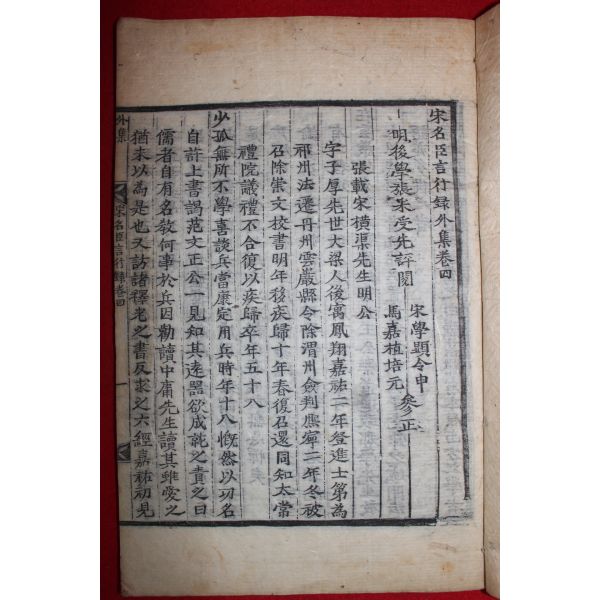 宋名臣言行錄外集卷四
明後學張采受先評閱
宋學顯令申
馬嘉植培元
參正
張載宋橫渠先生明公
字子厚先世大梁人後寓鳳翔嘉祐二年登進士第為
祁州法遷丹州雲巖縣令除渭州僉判熈寧二年冬被
召除崇文校書明年移疾歸十年春復召還同知太常
禮院議禮不合復以疾歸卒年五十八
少孤無所不學喜談兵當康定用兵時年十八慨然以功名
自許上書謁范文正公一見知其遠器欲成就之責之曰
儒者自有名敎何事於兵因勸讀中庸先生讀其雖愛之
猶未以為是也又訪諸釋老之書反求之六經嘉祐初見
外集
宋名臣言行錄卷四
一